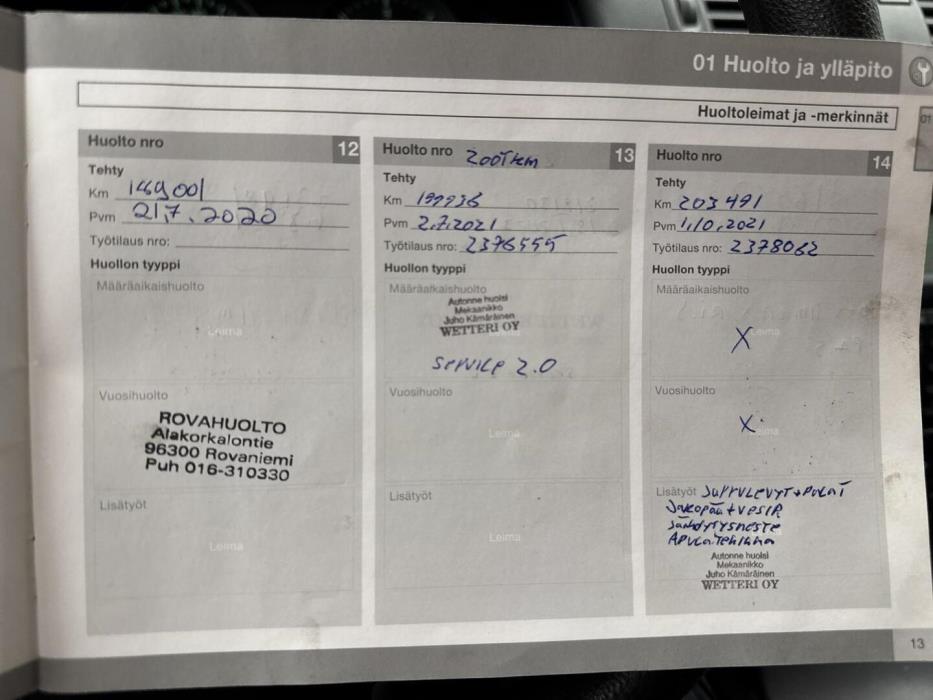 01 Huolto ja ylläpito
Huoltoleimat ja -merkinnät
01
Huolto nro 12
Tehty
Km 149001
Pvm 21,7.2020
Työtilaus nro:
Huollon tyyppi
Määräaikaishuolto
Leima
Vuosihuolto
ROVAHUOLTO
Alakorkalontie
96300 Rovaniemi
Puh 016-310330
Lisätyöt
Leima
Huolto nro 200Tkm 13
Tehty
Km 199936
Pvm 2.7.2021
Työtilaus nro: 2376555
Huollon tyyppi
Määräaikaishuolto
Autonne huolsi
Mekaanikko
Juho Kämäräinen
WETTERI OY
Service 2.0
Vuosihuolto
Leima
Lisätyöt
Leima
Huolto nro 14
Tehty
Km 203491
Pvm 1.10.2021
Työtilaus nro: 2378062
Huollon tyyppi
Määräaikaishuolto
X Leima
Vuosihuolto
X Leima
Lisätyöt JARRULEVYT + PALAT
Jakopää + VESIP
Jäähdytysneste
APULAITEHIHNA
Autonne huolsi
Mekaanikko
Juho Kämäräinen
WETTERI OY
13